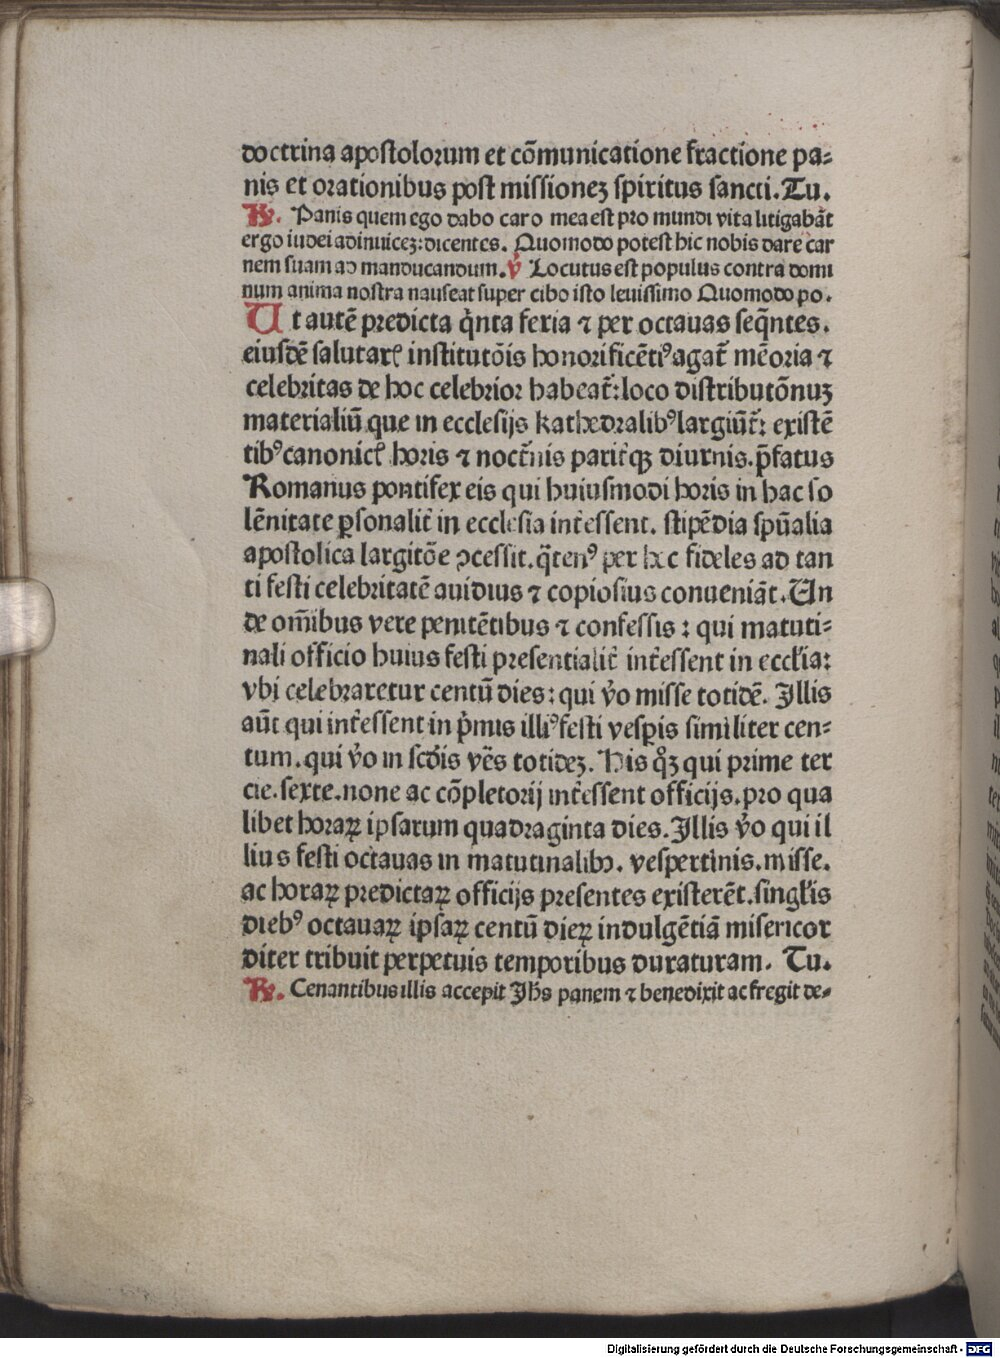 doctrina apostolorum et cõmunicatione fractione pa⸗
nis et orationibus post missionez spiritus sancti. Tu.
℟. Panis quem ego dabo caro mea est pro mundi vita litigabãt
ergo iudei adinuicez: dicentes. Quomodo potest hic nobis dare car
nem suam ad manducandum. ℣ Locutus est populus contra domi
num anima nostra nauseat super cibo isto leuissimo Quomodo po.
Ut autẽ predicta q̃nta feria ⁊ per octauas seq̃ntes.
eiusdẽ salutarꝭ institutõis honorificẽtiꝰ agat᷑ mẽoria ⁊
celebritas de hoc celebrior habeat᷑: loco distributõnuz
materialiũ que in ecclesijs kathedralibꝰ largiũt᷑: existẽ
tibꝰ canonicꝭ horis ⁊ noct᷑nis parit᷑qꝫ diurnis. p̃fatus
Romanus pontifex eis qui huiusmodi horis in hac so
lẽnitate ꝑsonalit᷑ in ecclesia int᷑essent. stipẽdia spũalia
apostolica largitõe ꝯcessit. q̃tenꝰ per hec fideles ad tan
ti festi celebritatẽ auidius ⁊ copiosius conueniãt. Un
de om̃ibus vere penitẽtibus ⁊ confessis: qui matuti⸗
nali officio huius festi presentialit᷑ int᷑essent in eccl̃ia:
vbi celebraretur centũ dies: qui ṽo misse totidẽ. Illis
aũt qui int᷑essent in p̃mis illiꝰ festi vesꝑis similiter cen⸗
tum. qui ṽo in scd̃is vẽs totidez. His qͦꝫ qui prime ter
cie. sexte. none ac cõpletorij int᷑essent officijs. pro qua
libet horaꝝ ipsarum quadraginta dies. Illis ṽo qui il
lius festi octauas in matutinalibꝫ. vespertinis. misse.
ac horaꝝ predictaꝝ officijs presentes existerẽt. singl̃is
diebꝰ octauaꝝ ipsaꝝ centũ dieꝝ indulgẽtiã misericor
diter tribuit perpetuis temporibus duraturam. Tu.
℟. Cenantibus illis accepit Jhs panem ⁊ benedixit ac fregit de⸗
Digitalisierung gefördert durch die Deutsche Forschungsgemeinschaft - DFG